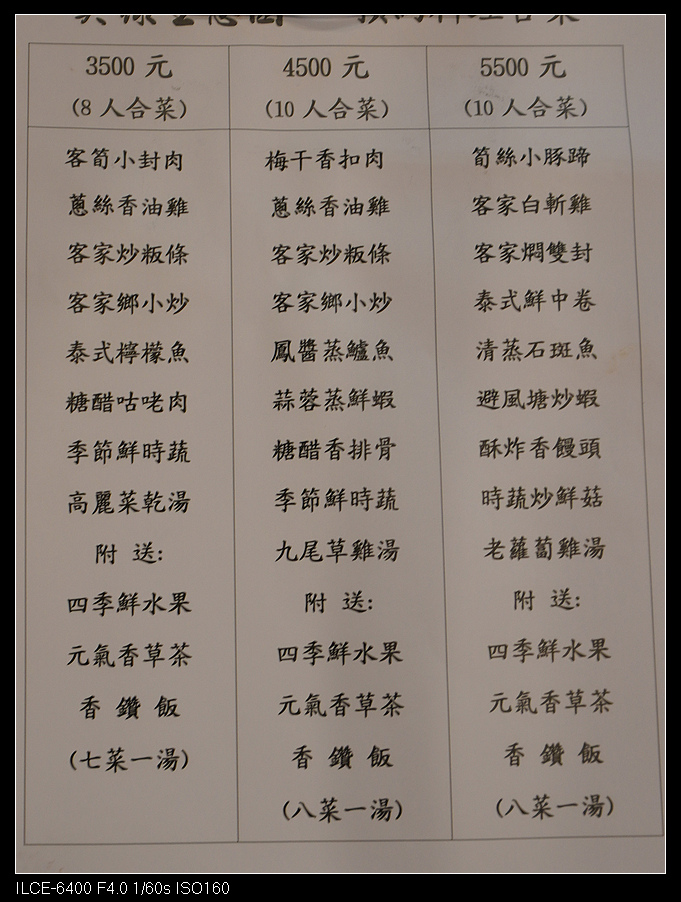 3500 元
(8 人合菜)
客筍小封肉
蔥絲香油雞
客家炒粄條
客家鄉小炒
泰式檸檬魚
糖醋咕咾肉
季節鮮時蔬
高麗菜乾湯
附 送:
四季鮮水果
元氣香草茶
香 鑽 飯
(七菜一湯)
4500 元
(10 人合菜)
梅干香扣肉
蔥絲香油雞
客家炒粄條
客家鄉小炒
鳳醬蒸鱸魚
蒜蓉蒸鮮蝦
糖醋香排骨
季節鮮時蔬
九尾草雞湯
附 送:
四季鮮水果
元氣香草茶
香 鑽 飯
(八菜一湯)
5500 元
(10 人合菜)
筍絲小豚蹄
客家白斬雞
客家燜雙封
泰式鮮中卷
清蒸石斑魚
避風塘炒蝦
酥炸香饅頭
時蔬炒鮮菇
老蘿蔔雞湯
附 送:
四季鮮水果
元氣香草茶
香 鑽 飯
(八菜一湯)
ILCE-6400 F4.0 1/60s ISO160